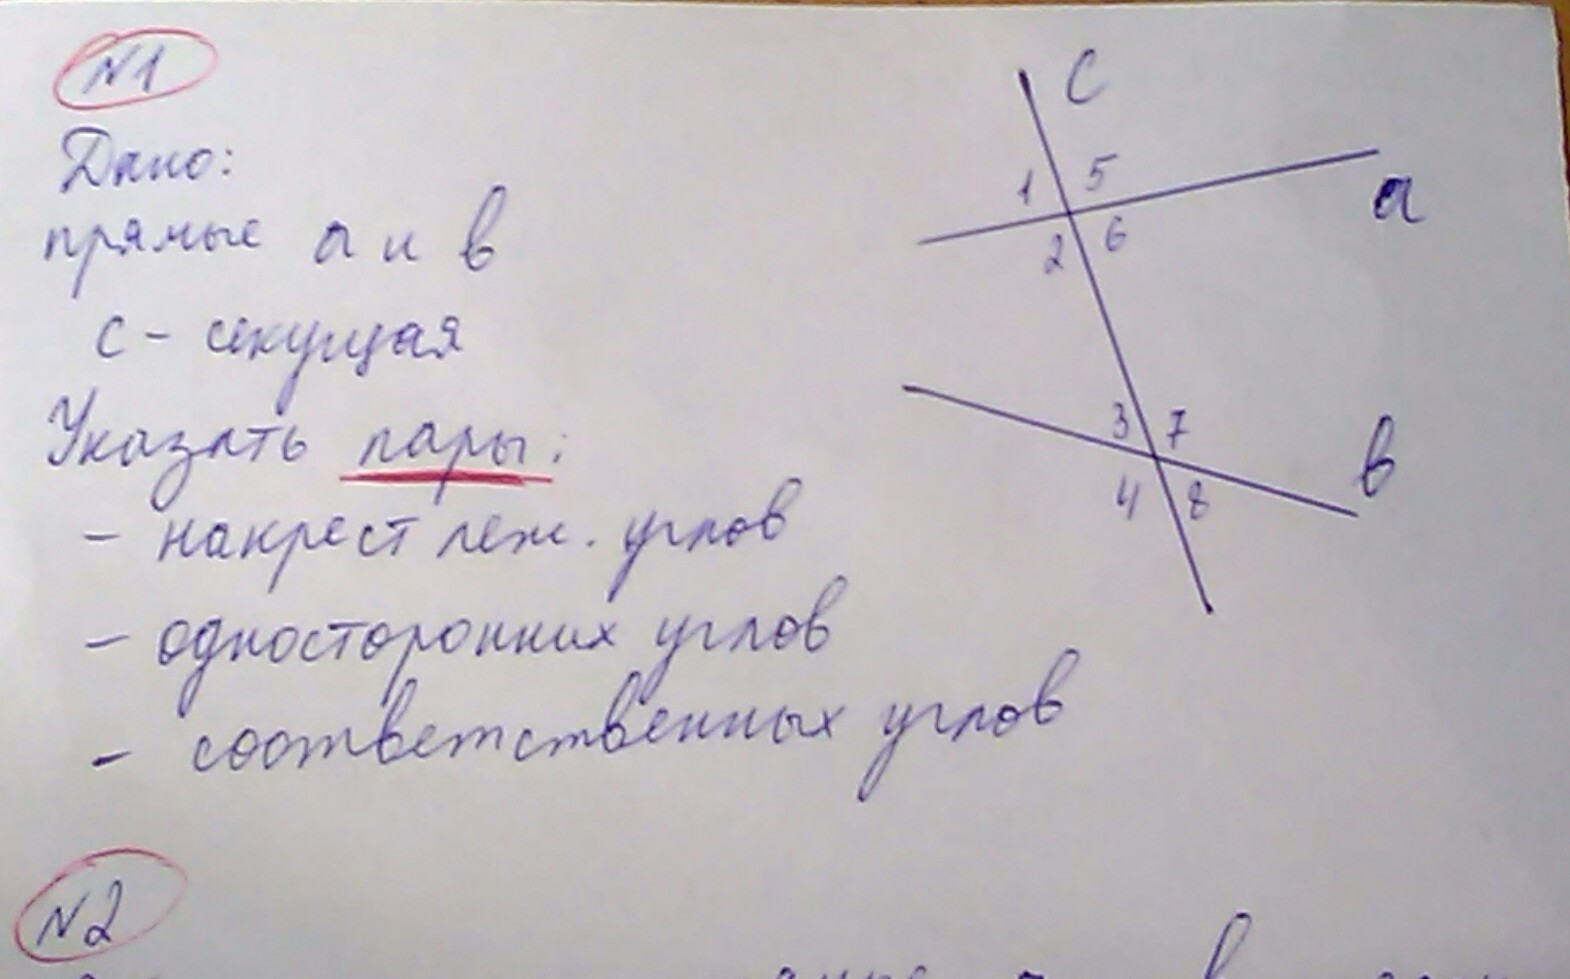 N1
Дано:
прямые а и в
с - секущая
Указать пары:
- накрест леж. углов
- односторонних углов
- соответственных углов
C
1 5
a
2 6
3 7
в
4 8
N2